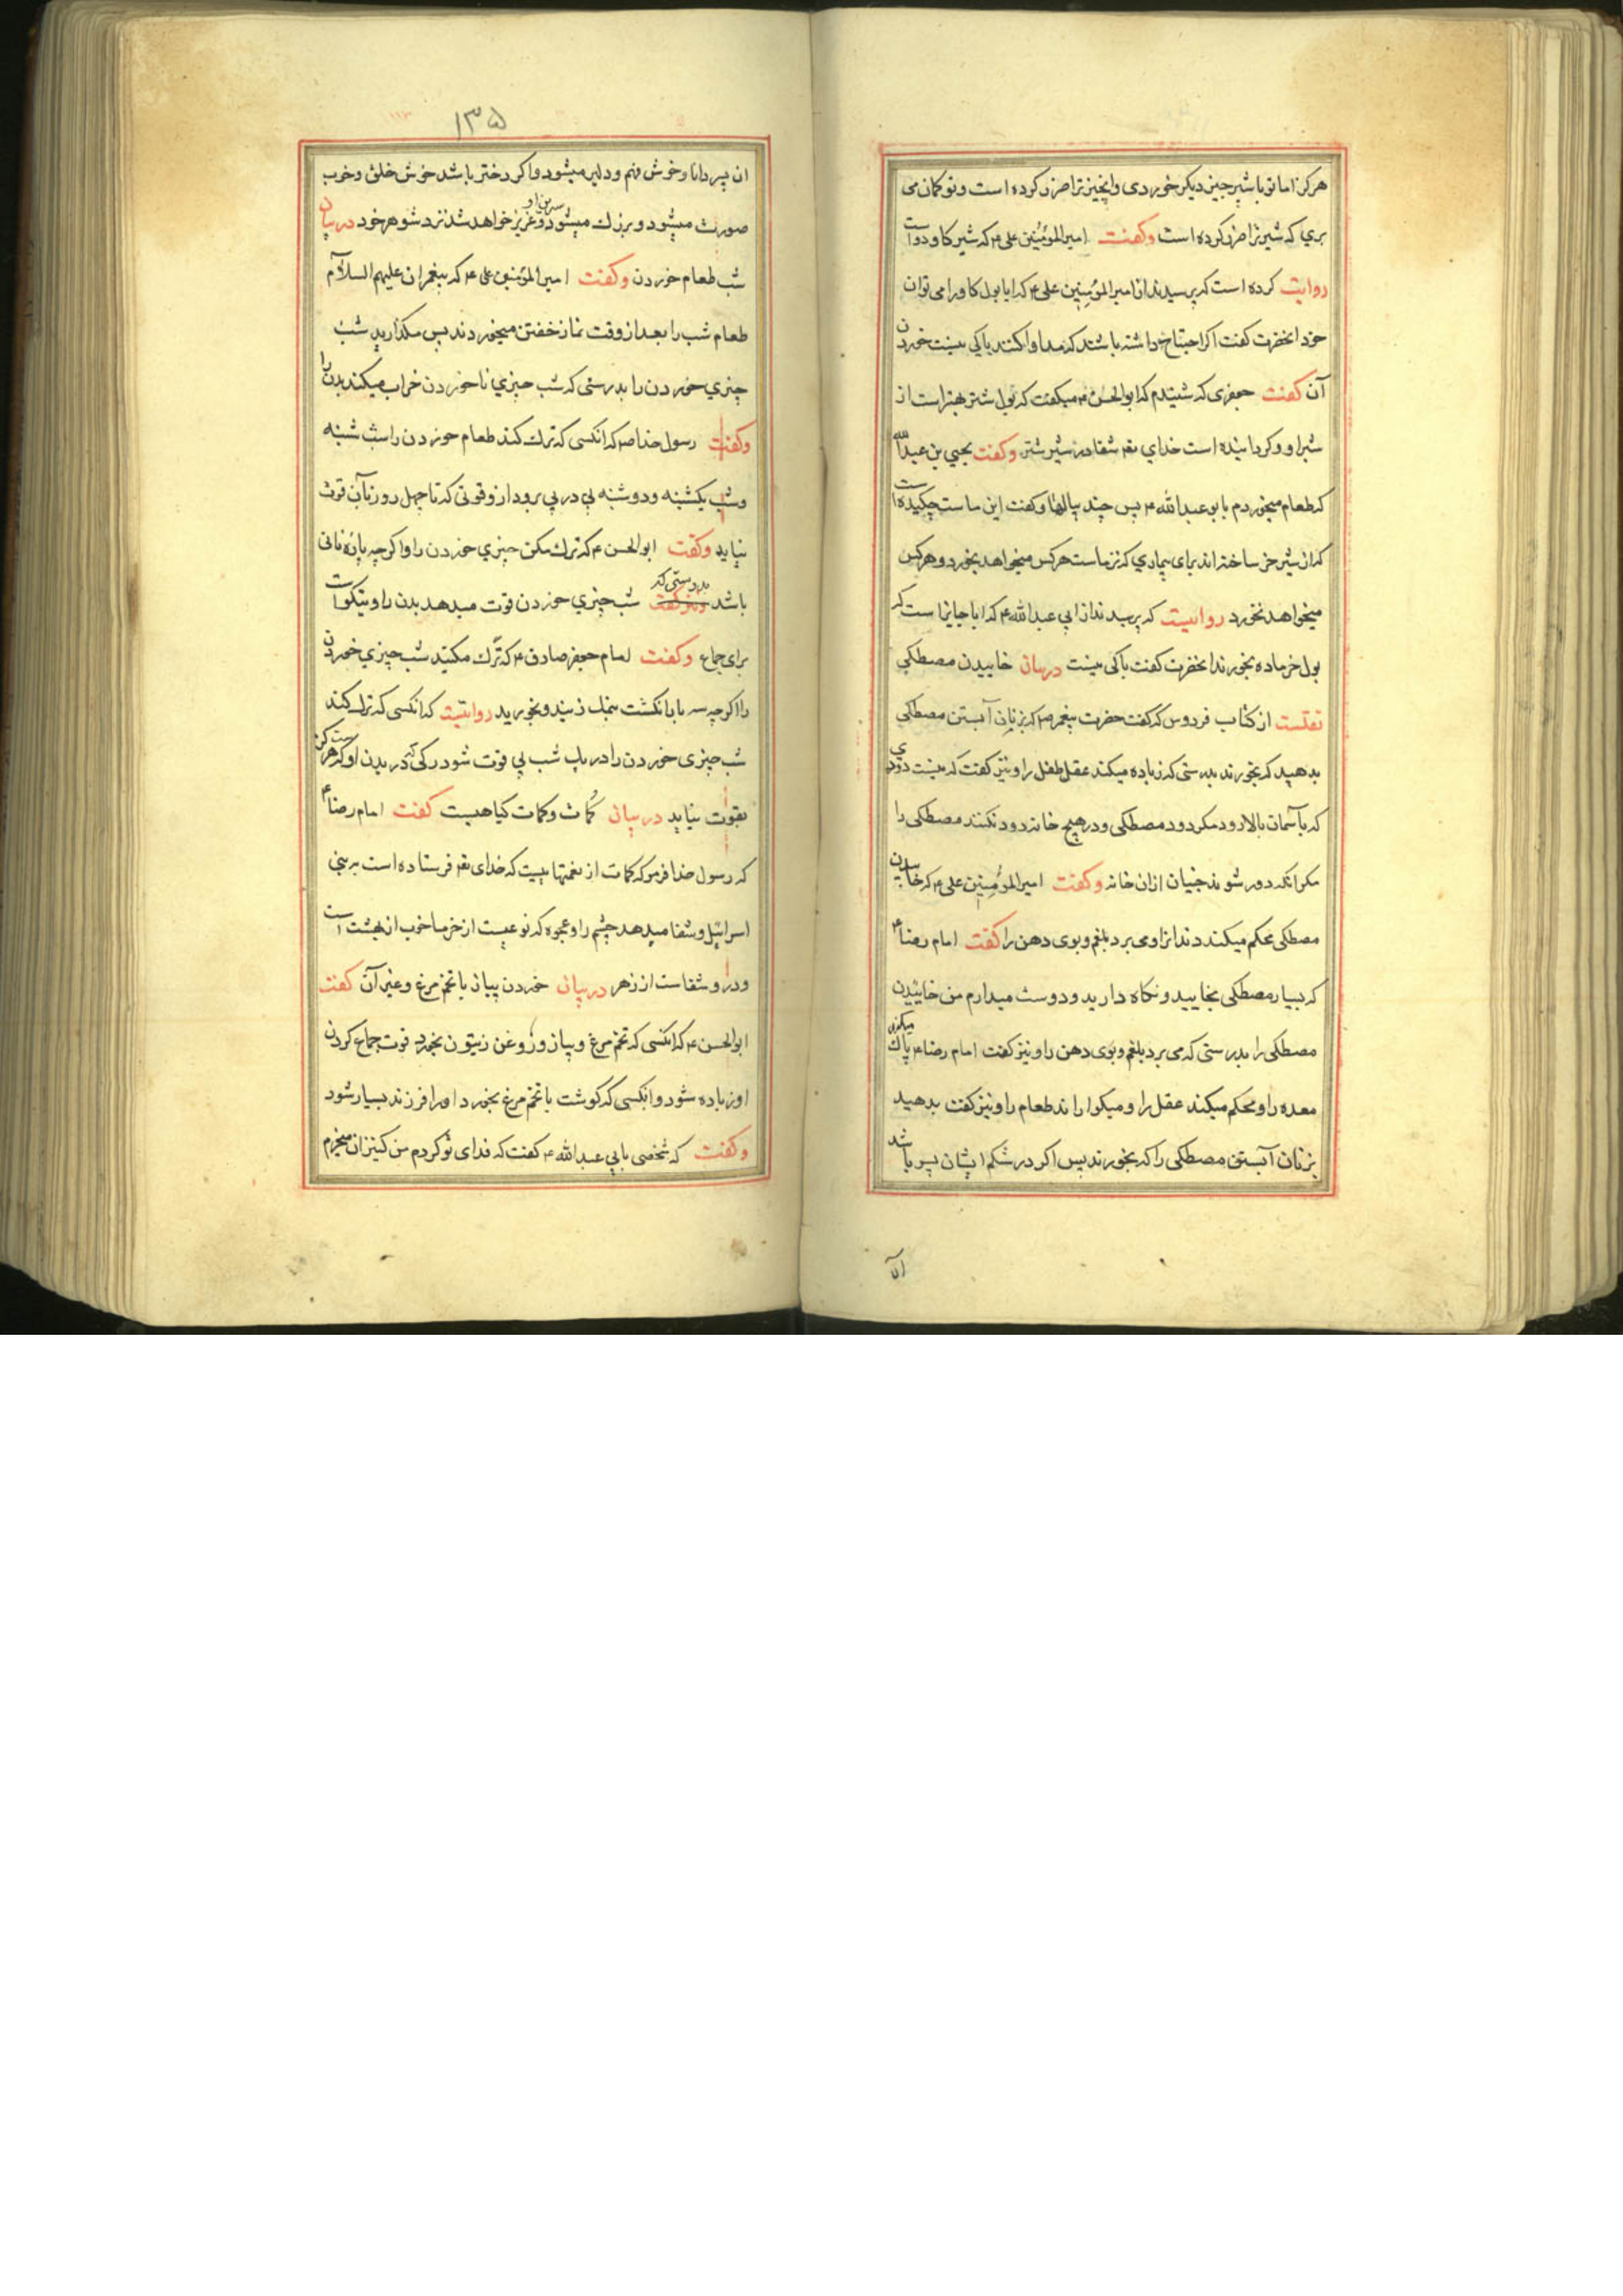 هرکز اما تو با شیر چیز دیکر خوردی وانچیز ترا ضرر کرده است و تو کمان می
بری که شیر ترا ضرر کرده است وکفت امیرالمؤمنین علی ع که شیر کاو دواست
روایت کرده است که پرسیدند از امیرالمؤمنین علی ع که ایا بول کاو را می توان
خورد انحضرت کفت اکر احتیاج داشته باشند که مداوا کنند باکی نیست خوردن
آن کفت جعفری که شنیدم که ابوالحسن ع میکفت که بول شتر بهتر است از
شیر او و کردانیده است خدای تعه شفا در شیر شتر وکفت یحیی بن عبدالله
که طعام میخوردم با بو عبدالله ع پس چند پیالها وکفت این ماست چکیده است
که از شیر خر ساخته اند برای بیماری که نزد ماست هرکس میخواهد بخورد و هرکس
میخواهد نخورد روایست که پرسیدند از ابی عبدالله ع که ایا جایز است که
بول خر ماده بخورند انحضرت کفت باکی نیست دربیان خاییدن مصطکی
نقلست از کتاب فردوس که کفت حضرت پیغمبر ص که بزنان آبستن مصطکی
بدهید که بخورند بدرستی که زیاده میکند عقل طفل را و نیز کفت که نیست دودی
که بآسمان بالا رود مکر دود مصطکی و در هیچ خانه دود نکنند مصطکی را
مکر انکه دور شوند جنیان ازان خانه وکفت امیرالمؤمنین علی ع که خاییدن
مصطکی محکم میکند دندانرا و می برد بلغم و بوی دهن را کفت امام رضا ع
که بسیار مصطکی بخایید و نکاه دارید و دوست میدارم من خاییدن
مصطکی را بدرستی که می برد بلغم و بوی دهن را و نیز کفت امام رضا ع پاک میکند
معده را و محکم میکند عقل را و میکواراند طعام را و نیز کفت بدهید
بزنان آبستن مصطکی را که بخورند پس اکر در شکم ایشان پسر باشد
ان
۱۳۵
ان پسر دانا و خوش فهم و دلیر میشود و اکر دختر باشد خوش خلق و خوب
صورت میشود و بزرك میشود سرین او و عزیز خواهد شد نزد شوهر خود دربیان
شب طعام خوردن وکفت امیرالمؤمنین علی ع که پیغمبران علیهم السلام
طعام شب را بعد از وقت نماز خفتن میخوردند پس مکذارید شب
چیزی خوردن را بدرستی که شب چیزی ناخوردن خراب میکند بدن را
وکفت رسول خدا ص که انکسی که ترك کند طعام خوردن را شب شنبه
وشب یکشنبه و دوشنبه پی در پی برود ازو قوتی که تا چهل روز بآن قوت
نیاید وکفت ابوالحسن ع که ترك مکن چیزی خوردن را و اکر چه پاره نانی
باشد بدرستی که شب چیزی خوردن قوت میدهد بدن را و نیکواست
برای جماع وکفت امام جعفر صادق ع که ترك مکنید شب چیزی خوردن
را اکر چه سه بار انکشت بنمك زنید و بخورید روایتست که انکسی که ترك کند
شب چیزی خوردن را در یك شب پی قوت شود رکی که در بدن او که هرکز
بقوت نیاید دربیان کمات و کمات کیاهیست کفت امام رضا ع
که رسول خدا فرمو که کمات از نعمتهاییست که خدای تعه فرستاده است به بنی
اسرائیل و شفا میدهد چشم را و عجوه که نوعیست از خرما خوب از بهشت است
و درو شفاست از زهر دربیان خوردن پیاز با تخم مرغ و غیر آن کفت
ابوالحسن ع که انکسی که تخم مرغ و پیاز و روغن زیتون بخورد قوت جماع کردن
او زیاده شود و انکسی که کوشت با تخم مرغ بخورد اورا فرزند بسیار شود
وکفت که شخصی بابی عبدالله ع کفت که فدای تو کردم من کنیزان میخرم